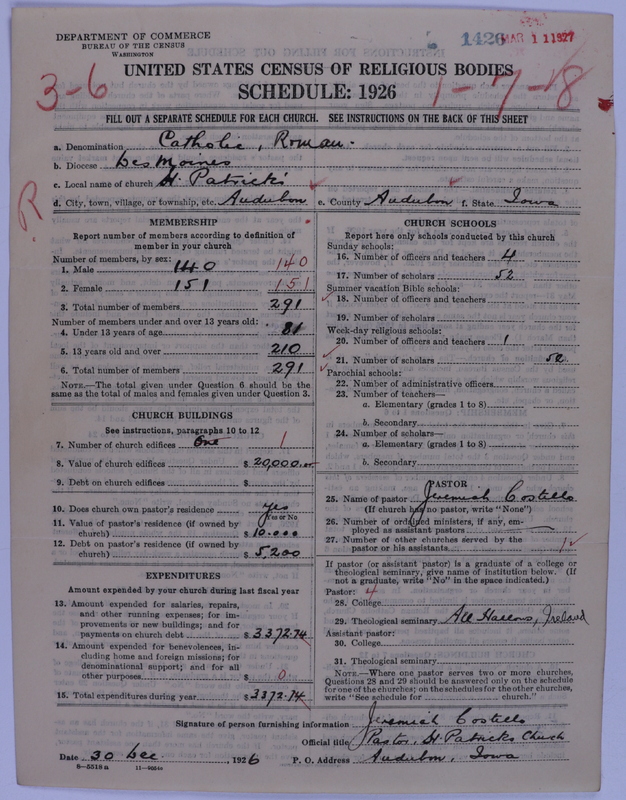 DEPARTMENT OF COMMERCE
BUREAU OF THE CENSUS
WASHINGTON
1426
MAR 11 1927
UNITED STATES CENSUS OF RELIGIOUS BODIES
SCHEDULE: 1926
3-6
1-7-8
FILL OUT A SEPARATE SCHEDULE FOR EACH CHURCH. SEE INSTRUCTIONS ON THE BACK OF THIS SHEET
a. Denomination Catholic, Roman.
b. Diocese Des Moines
c. Local name of church St Patrick's
d. City, town, village, or township, etc. Audubon e. County Audubon f. State Iowa
R
MEMBERSHIP
Report number of members according to definition of
member in your church
Number of members, by sex:
1. Male 140 140
2. Female 151 151
3. Total number of members 291
Number of members under and over 13 years old:
4. Under 13 years of age 81
5. 13 years old and over 210
6. Total number of members 291
NOTE.—The total given under Question 6 should be the
same as the total of males and females given under Question 3.
CHURCH BUILDINGS
See instructions, paragraphs 10 to 12
7. Number of church edifices One 1
8. Value of church edifices $ 20,000.00
9. Debt on church edifices $
10. Does church own pastor's residence yes
Yes or No
11. Value of pastor's residence (if owned by
church) $ 10.000
12. Debt on pastor's residence (if owned by
church) $ 5,200
EXPENDITURES
Amount expended by your church during last fiscal year
13. Amount expended for salaries, repairs,
and other running expenses; for im-
provements or new buildings; and for
payments on church debt $ 3372.74
14. Amount expended for benevolences, in-
cluding home and foreign missions; for
denominational support; and for all
other purposes $ 0
15. Total expenditures during year $ 3372.74
CHURCH SCHOOLS
Report here only schools conducted by this church
Sunday schools:
16. Number of officers and teachers 4
17. Number of scholars 52
Summer vacation Bible schools:
18. Number of officers and teachers
19. Number of scholars
Week-day religious schools:
20. Number of officers and teachers 1
21. Number of scholars 52
Parochial schools:
22. Number of administrative officers
23. Number of teachers—
a. Elementary (grades 1 to 8)
b. Secondary
24. Number of scholars—
a. Elementary (grades 1 to 8)
b. Secondary
PASTOR
25. Name of pastor Jeremiah Costello
(If church has no pastor, write "None")
26. Number of ordained ministers, if any, em-
ployed as assistant pastors
27. Number of other churches served by the
pastor or his assistants
If pastor (or assistant pastor) is a graduate of a college or
theological seminary, give name of institution below. (If
not a graduate, write "No" in the space indicated.)
Pastor: 4
28. College
29. Theological seminary All Hallows, Ireland
Assistant pastor:
30. College
31. Theological seminary
NOTE.—Where one pastor serves two or more churches,
Questions 28 and 29 should be answered only on the schedule
for one of the churches; on the schedules for the other churches,
write "See schedule for church."
Signature of person furnishing information Jeremiah Costello
Official title Pastor, St Patricks Church
Date 30 Dec , 1926 P. O. Address Audubon, Iowa
8—5519 a